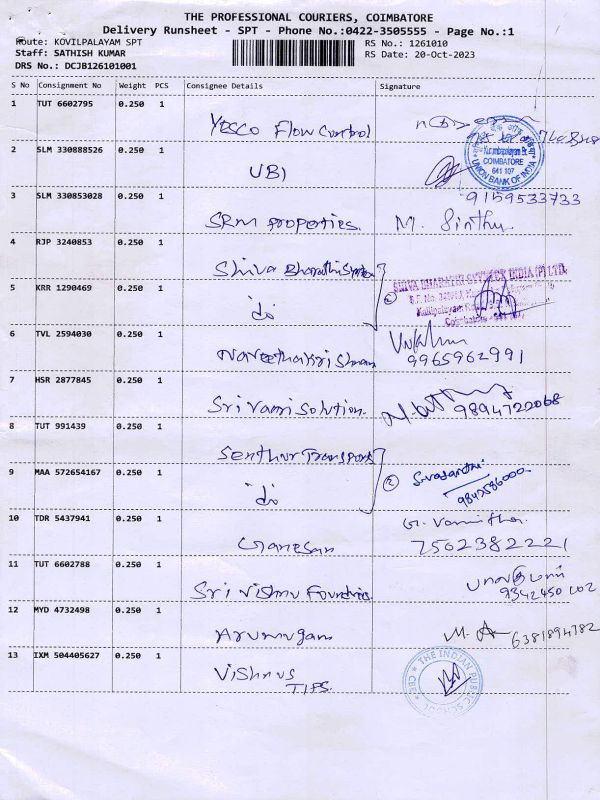 THE PROFESSIONAL COURIERS, COIMBATORE
Delivery Runsheet - SPT - Phone No.:0422-3505555 - Page No.:1
Route: KOVILPALAYAM SPT
RS No.: 1261010
Staff: SATHISH KUMAR
RS Date: 20-Oct-2023
DRS No.: DCJB126101001
S No Consignment No Weight PCS Consignee Details Signature
1 TUT 6602795 0.250 1 Yesco Flow Control
2 SLM 330888526 0.250 1 UBI
COIMBATORE
641 107
UNION BANK OF INDIA
3 SLM 330853028 0.250 1 SRM properties. M. Sinthu
9159533733
4 RJP 3240853 0.250 1 Shiva Bharathi
SHIVA BHARATHI INDIA (P) LTD.
5 KRR 1290469 0.250 1 do 2
Coimbatore - 641 107
6 TVL 2594030 0.250 1 Navaneethakrishnan
9965962991
7 HSR 2877845 0.250 1 Sri Vari Solution
9894722068
8 TUT 991439 0.250 1 Senthur Transports
9 MAA 572654167 0.250 1 do 2 S.vasanthi
9842586000
10 TDR 5437941 0.250 1 Ganesan G. Vanitha
7502382221
11 TUT 6602788 0.250 1 Sri Vishnu Foundries
9342450102
12 MYD 4732498 0.250 1 Arumugam M. A 6381894782
13 IXM 504405627 0.250 1 Vishnus
TIPS.
THE INDIAN PUBLIC SCHOOL
CBE